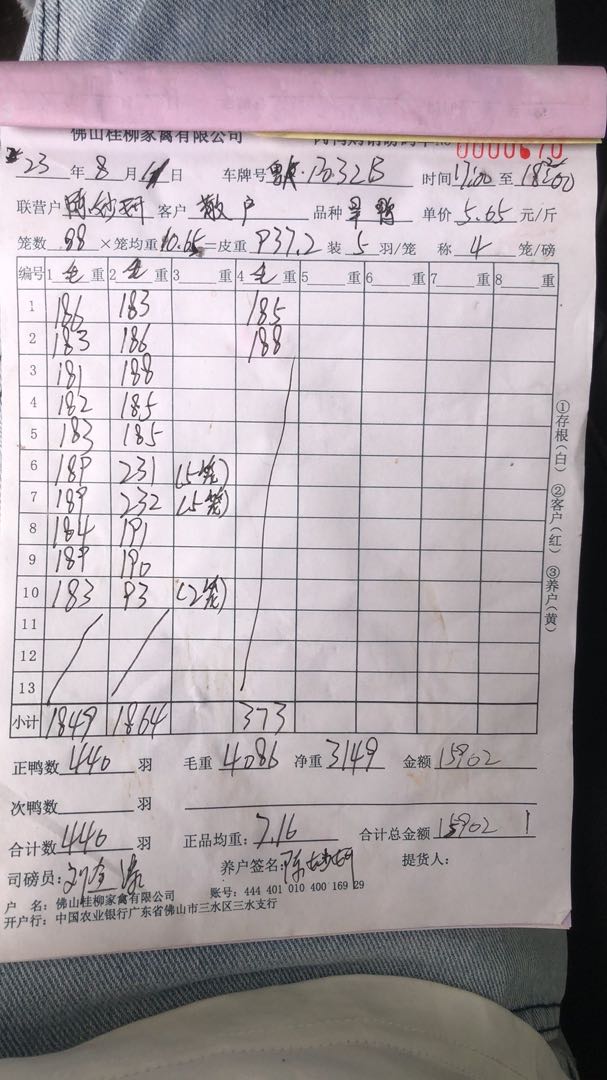 佛山桂柳家禽有限公司 0000670
23 年 8 月 日 车牌号 ·1032B 时间 17:00 至 18:00
联营户 客户 散户 品种 单价 5.65 元/斤
笼数 88 ×笼均重 10.65 =皮重 937.2 装 5 羽/笼 称 4 笼/磅
编号 1 毛 重 2 毛 重 3 重 4 毛 重 5 重 6 重 7 重 8 重
1 186 183 185
2 183 186 188
3 181 188
4 182 185
5 183 185
6 189 231 (5笼)
7 189 232 (5笼)
8 184 191
9 189 190
10 183 93 (2笼)
11
12
13
小计 1849 1864 373
正鸭数 440 羽 毛重 4086 净重 3149 金额 15902
次鸭数 羽
合计数 440 羽 正品均重: 7.16 合计总金额 15902
司磅员: 养户签名: 提货人:
户 名: 佛山桂柳家禽有限公司 账号: 444 401 010 400 169 29
开户行: 中国农业银行广东省佛山市三水区三水支行
①存根(白) ②客户(红) ③养户(黄)